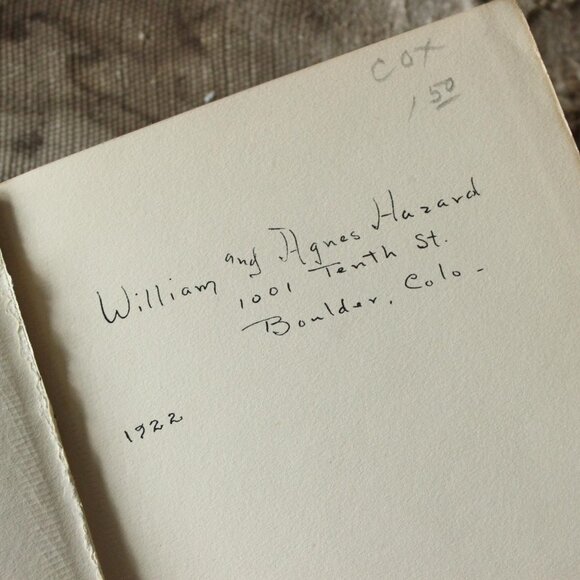 COX
1.50
William and Agnes Hazard
1001 Tenth St.
Boulder, Colo-
1922